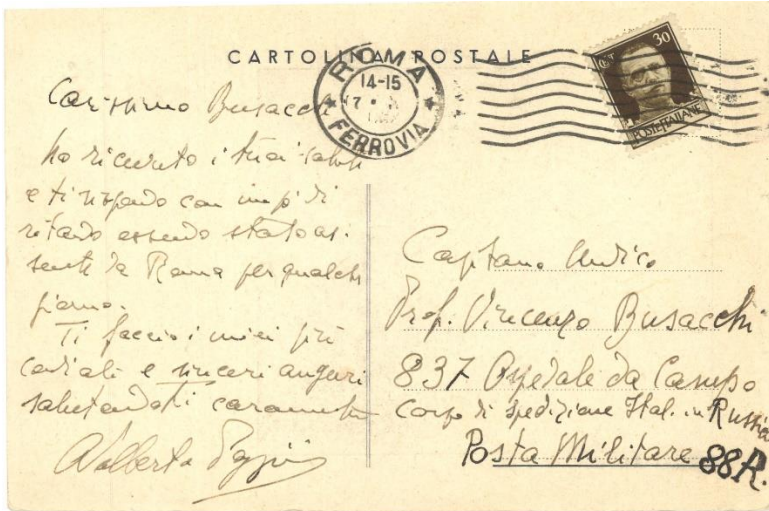 CARTOLINA POSTALE
ROMA
14-15
FERROVIA
30
POSTE ITALIANE
Carissimo Busacchi
ho ricevuto i tuoi saluti
e ti rispondo con un pò di
ritardo essendo stato as-
sente da Roma per qualche
giorno.
Ti faccio i miei più
cordiali e sinceri auguri
salutandoti caramente
Adalberto
Capitano Medico
Prof. Vincenzo Busacchi
837 Ospedale da Campo
Corpo di spedizione Ital. in Russia
Posta Militare 88R.